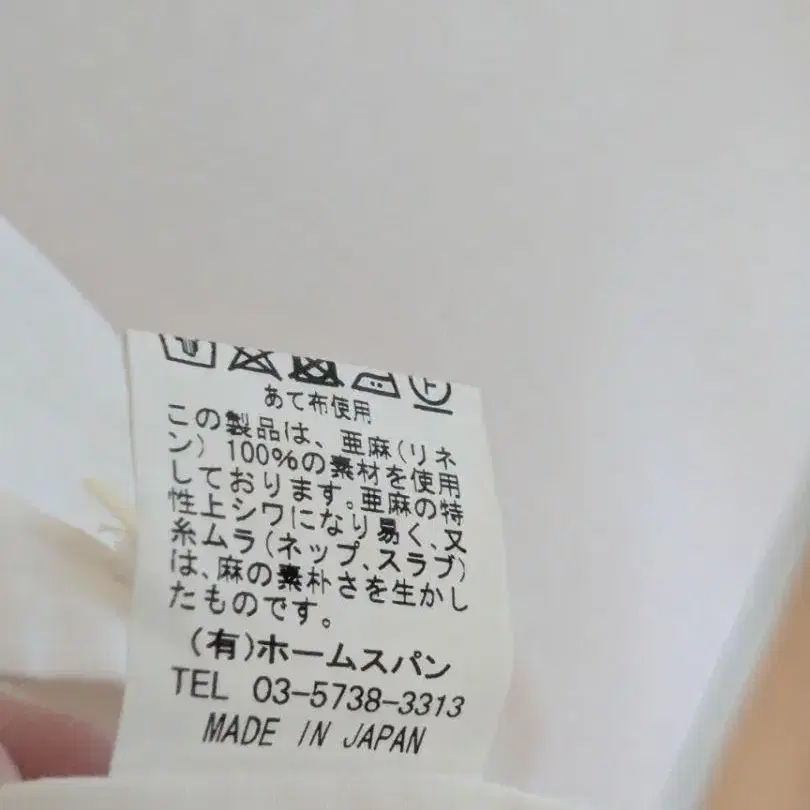 あて布使用
この製品は、亜麻(リネ
ン)100%の素材を使用
しております。亜麻の特
性上シワになり易く、又
糸ムラ(ネップ、スラブ)
は、麻の素朴さを生かし
たものです。
(有)ホームスパン
TEL 03-5738-3313
MADE IN JAPAN